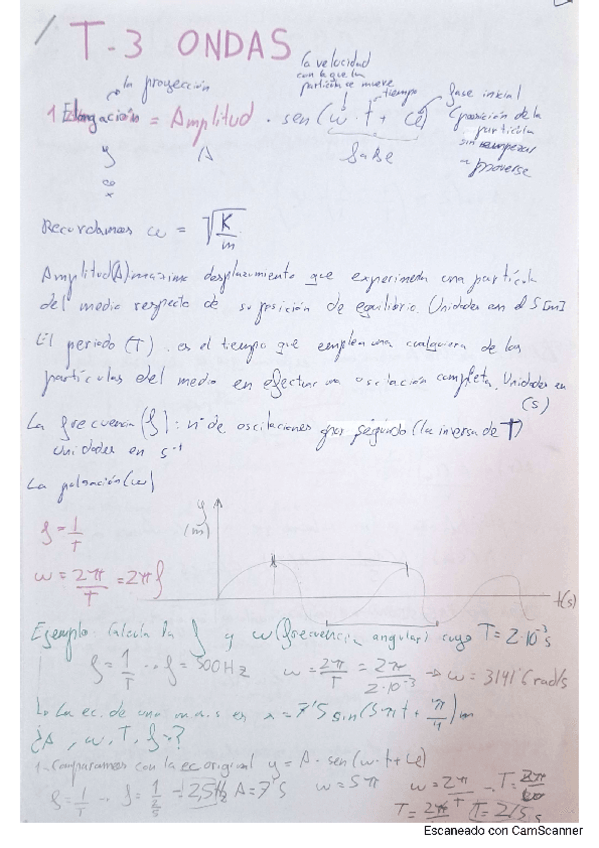 T-3 ONDAS
la proyección
la velocidad
con la que la
partícula se mueve
tiempo
fase inicial
(posición de la
partícula
sin empezar
a moverse
1 Elongación = Amplitud · sen (w·t + φ)
y A fase
x
Recordamos ω = √K/m
Amplitud (A) máximo desplazamiento que experimenta una partícula
del medio respecto de su posición de equilibrio. Unidades en el S [m]
El periodo (T). es el tiempo que emplea una cualquiera de las
partículas del medio en efectuar una oscilación completa. Unidades en
(s)
La frecuencia (f): nº de oscilaciones por segundo (la inversa de T)
unidades en s⁻¹
La pulsación (ω)
f = 1/T
ω = 2π/T = 2πf
y
(m)
t(s)
Ejemplo. Calcula la f y ω (frecuencia angular) cuyo T = 2·10⁻³ s
f = 1/T f = 500 Hz ω = 2π/T = 2π/2·10⁻³ → ω = 3141'6 rad/s
La ec. de una m.a.s es x = 7'5 sin (5πt + π/4) m
¿A, ω, T, f=?
1- Comparamos con la ec original y = A · sen (w·t + φ)
A = 7'5 ω = 5π ω = 2π/T
T = 2/5 s